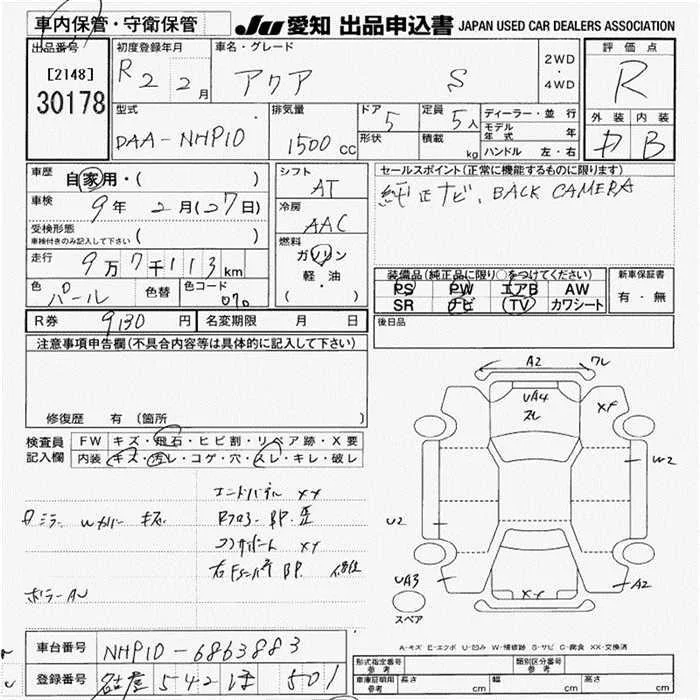 車内保管・守衛保管
JU 愛知 出品申込書 JAPAN USED CAR DEALERS ASSOCIATION
出品番号 [2148] 30178
初度登録年月 R2 2月
車名・グレード アクア S
2WD・4WD
評価点 R
外装 内装 B
型式 DAA-NHP10
排気量 1500cc
ドア 5
形状
定員 5人
積載 kg
ディーラー・並行
モデル年式 年
ハンドル 左・右
車歴 自家用・( )
車検 9年 2月(27日)
受検形態 車検付きのみ記入して下さい ( )
走行 9万7千113km
色 パール 色替 色コード 070
シフト AT
冷房 AAC
燃料 ガソリン 軽・油 ( )
セールスポイント(正常に機能するものに限ります)
純正ナビ、BACK CAMERA
装備品(純正品に限り○をつけてください)
PS PW エアB AW
SR ナビ (TV) カワシート
新車保証書 有・無
R券 9130円 名変期限 月 日
後日品
注意事項申告欄(不具合内容等は具体的に記入して下さい)
修復歴 有 (箇所 )
検査員記入欄
FW キズ・飛石・ヒビ割・リペア跡・X要
内装 キズ・汚レ・コゲ・穴・スレ・キレ・破レ
エンドパネル XX
ミラー Wカバー キズ
RフロアーBP.歪
コアサポート XX
右Fインパネ BP 修復
ボデーAU
A2
ワレ
UA4
スレ
XX
W2
U2
UA3
XX
A2
スペア
A-キズ E-エクボ U-凹み W-補修跡 S-サビ C-腐食 XX-交換済
車台番号 NHP10-6863883
登録番号 名古屋 542 ほ 501
形式指定番号 参考
類別区分番号 参考
車庫証明用 参考 長さ cm 幅 cm 高さ cm